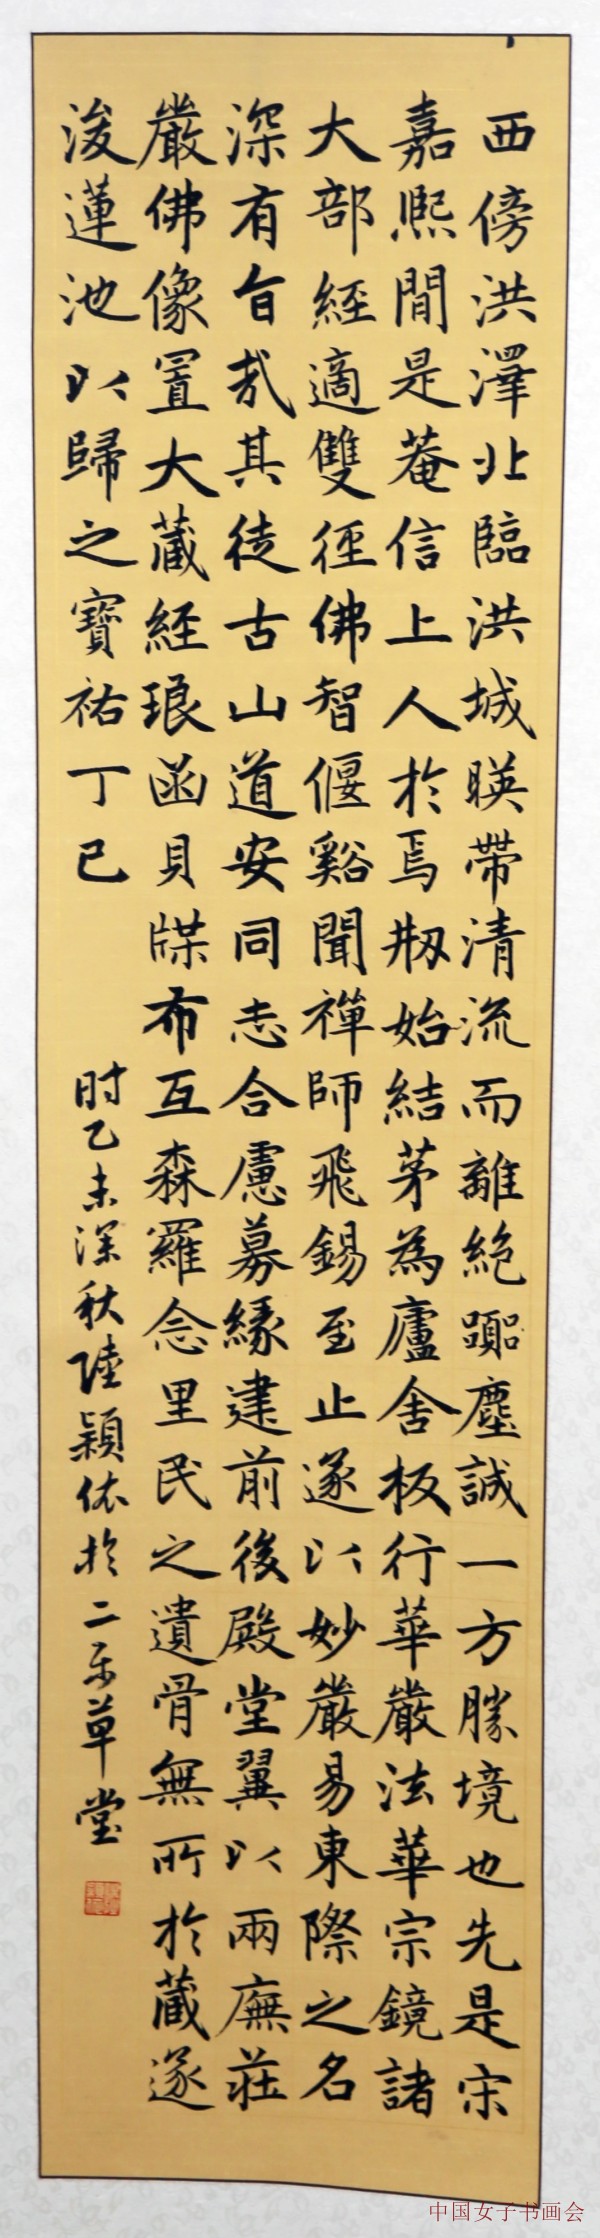 西傍洪澤北臨洪城暎帶清流而離絕躧塵誠一方勝境也先是宋
嘉熙間是菴信上人於焉刱始結茅為廬舍板行華嚴法華宗鏡諸
大部經適雙徑佛智偃谿聞禪師飛錫至止遂以妙嚴易東際之名
深有旨哉其徒古山道安同志合慮募緣建前後殿堂翼以兩廡莊
嚴佛像置大藏經琅函貝牒布互森羅念里民之遺骨無所於藏遂
浚蓮池以歸之寶祐丁已
时乙未深秋陸穎依於二乐草堂
中国女子书画会